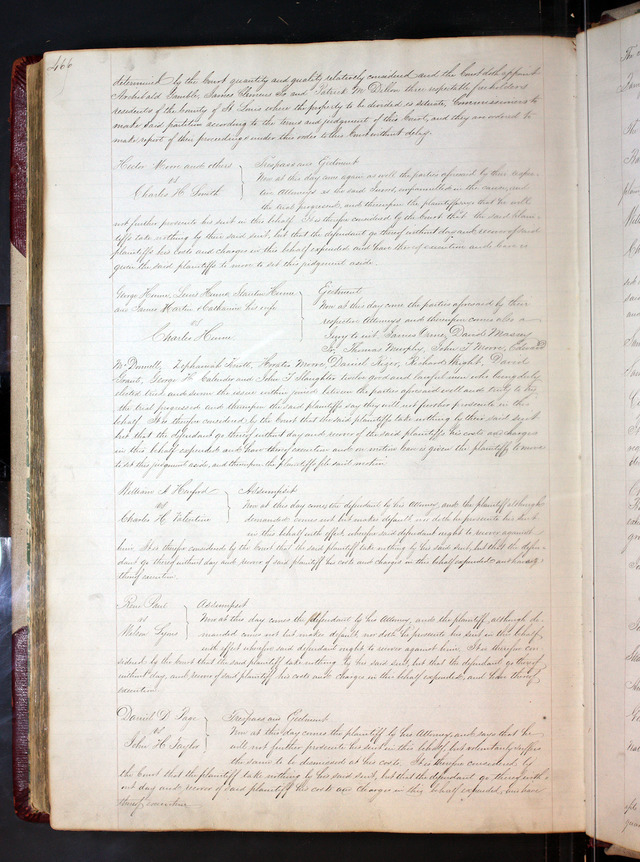 466
determined by the Court quantity and quality relatively considered and the Court doth appoint
Archibald Gamble, James Clemens Jr and Patrick M Dillon three reputable freeholders
residents of the County of St Louis where the property to be divided is situate, Commissioners to
make said partition according to the terms and judgment of this Court, and they are ordered to
make report of their proceedings under this order to this Court without delay.
Hector Moore and others
vs
Charles H. Smith
Trespass and Ejectment
Now at this day come again as well the parties aforesaid by their respec-
tive Attorneys as the said Jurors, empannelled in the cause, and
the trial progressed, and thereupon the plaintiffs say that he will
not further prosecute his suit in this behalf. It is therefore considered by the Court that the said plain-
tiffs take nothing by their said suit, but that the defendant go thereof without day and recover of said
plaintiffs his costs and charges in this behalf expended and have thereof execution and leave is
given the said plaintiffs to move to set this judgement aside.
George Hume, Lewis Hume, Stanton Hume
and James Martin Catharine his wife
vs
Charles Hume
Ejectment
Now at this day come the parties aforesaid by their
respective Attorneys and thereupon comes also a
Jury to wit, James Orme, David Massey
Sr, Thomas Murphy, John T Moore, Edward
McDonnell, Zephaniah Knott, Horatio Moore, Daniel Kizer, Richard Wright, David
Grant, George W. Callender and John T Slaughter twelve good and lawful men who being duly
elected tried and sworn the issue within joined between the parties aforesaid well and truly to try
the trial progressed and thereupon the said plaintiffs say they will not further prosecute in this
behalf. It is therefore considered by the Court that the said plaintiffs take nothing by their said suit
but that the defendant go thereof without day and recover of the said plaintiffs his costs and charges
in this behalf expended and have thereof execution and on motion leave is given the plaintiffs to move
to set this judgment aside, and thereupon the plaintiffs file said motion
William A Harford
vs
Charles H. Valentine
Assumpsit
Now at this day comes the defendant by his Attorney, and the plaintiff, although
demanded comes not but makes default nor doth he prosecute his suit
in this behalf with effect wherefore said defendant ought to recover against
him. It is therefore considered by the Court that the said plaintiff take nothing by his said suit, but that the defen-
dant go thereof without day and recover of said plaintiff his costs and charges in this behalf expended and have
thereof execution.
Rene Paul
vs
Nelson Lyons
Assumpsit
Now at this day comes the defendant by his Attorney, and the plaintiff, although de-
manded comes not but makes default nor doth he prosecute his suit in this behalf,
with effect wherefore said defendant ought to recover against him. It is therefore con-
sidered by the Court that the said plaintiff take nothing by his said suit, but that the defendant go thereof
without day, and recover of said plaintiff his costs and charges in this behalf expended, and have thereof
execution
Daniel D. Page
vs
John H. Taylor
Trespass and Ejectment
Now at this day comes the plaintiff by his Attorney, and says that he
will not further prosecute his suit in this behalf, but voluntarily suffers
the same to be dismissed at his costs. It is therefore considered by
the Court that the plaintiff take nothing by his said suit, but that the defendant go thereof with-
out day and recover of said plaintiff his costs and charges in this behalf expended, and have
thereof execution